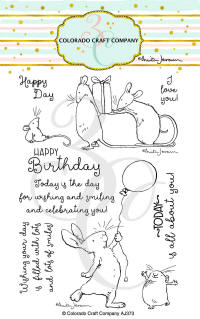 COLORADO CRAFT COMPANY
Anita Jeram
Happy
Day
I
love
you!
Anita Jeram
HAPPY
Birthday
Today is the day
for wishing and smiling
and celebrating you!
Wishing your day
is filled with lots
and lots of smiles!
TODAY
is all about you!
© Colorado Craft Company AJ373